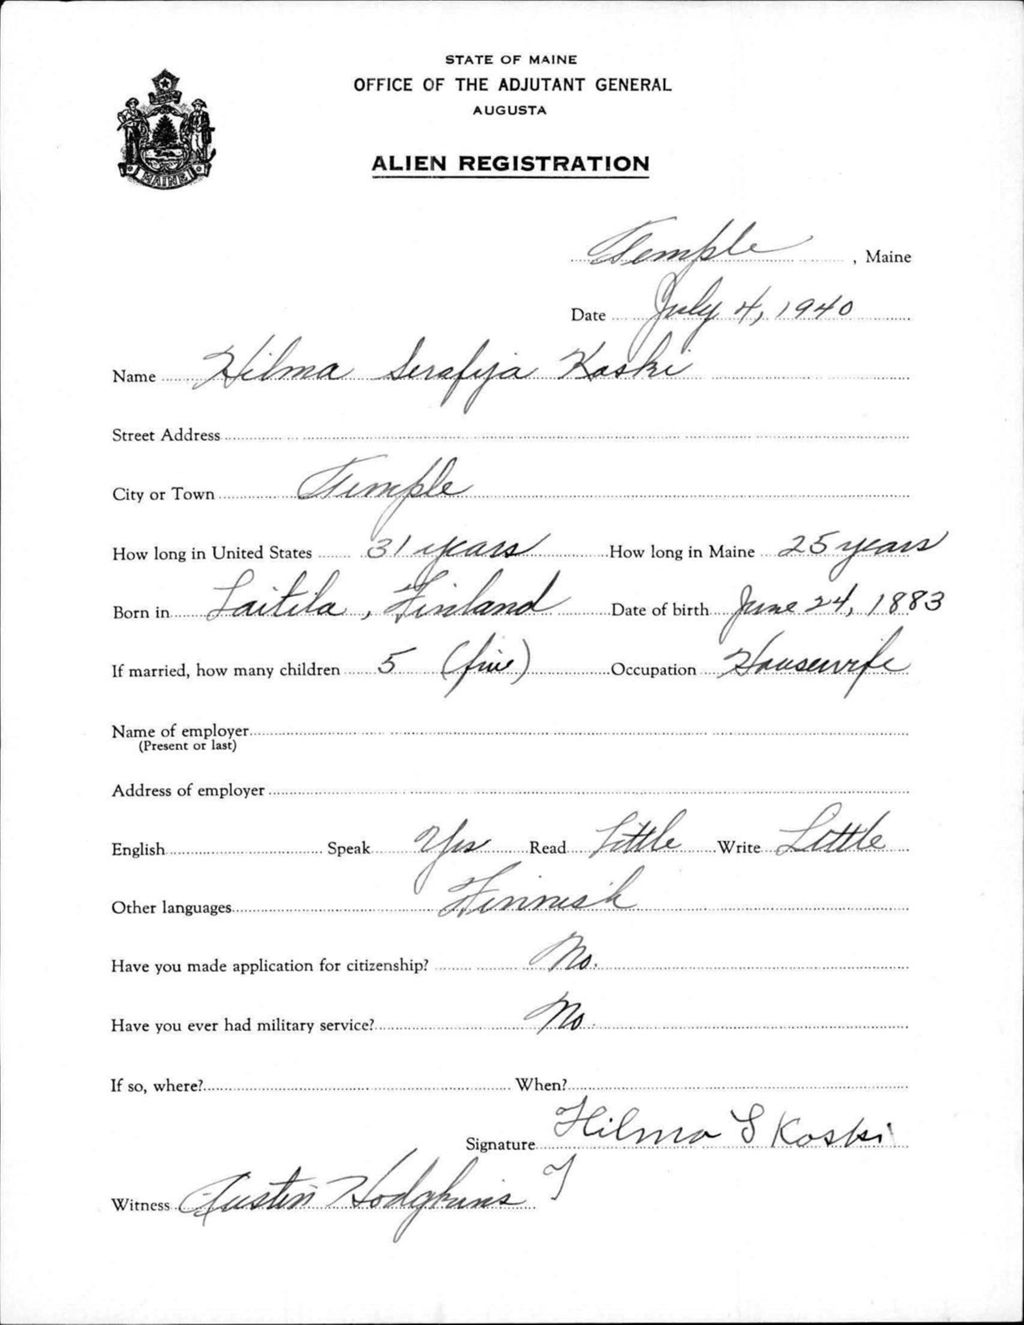 STATE OF MAINE
OFFICE OF THE ADJUTANT GENERAL
AUGUSTA
MAINE
ALIEN REGISTRATION
Temple, Maine
Date July 4, 1940
Name Hilma Serafija Koski
Street Address
City or Town Temple
How long in United States 31 years How long in Maine 25 years
Born in Laitila, Finland Date of birth June 24, 1883
If married, how many children 5 (five) Occupation Housewife
Name of employer
(Present or last)
Address of employer
English Speak Yes Read Little Write Little
Other languages Finnish
Have you made application for citizenship? No.
Have you ever had military service? No.
If so, where? When?
Signature Hilma S Koski
Witness Austin Hodgkins